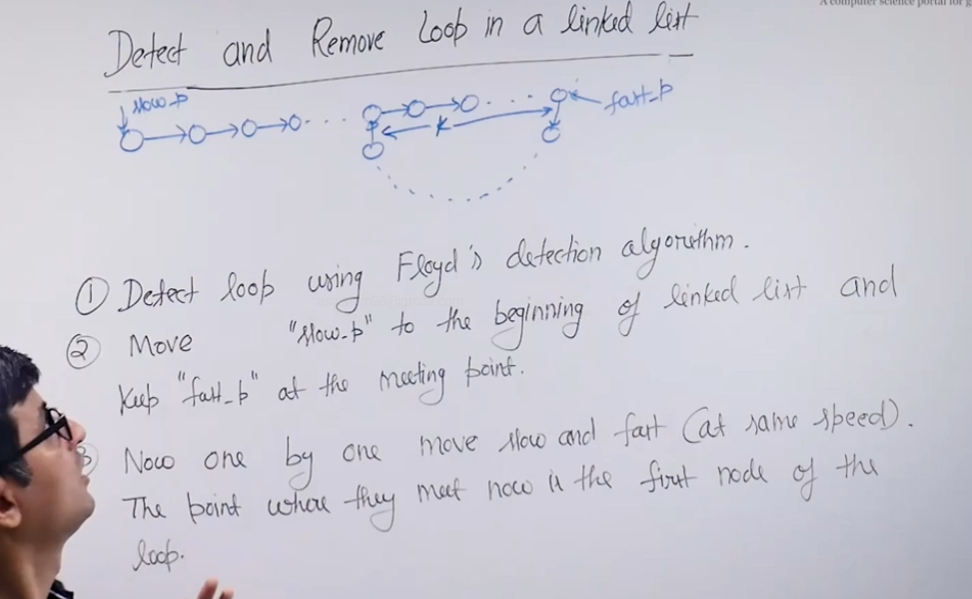 A computer science portal for g
Detect and Remove Loop in a linked list
slow_p
fast_p
K
① Detect loop using Floyd's detection algorithm.
② Move "slow_p" to the beginning of linked list and
Keep "fast_p" at the meeting point.
3 Now one by one move slow and fast (at same speed).
The point where they meet now is the first node of the
loop.